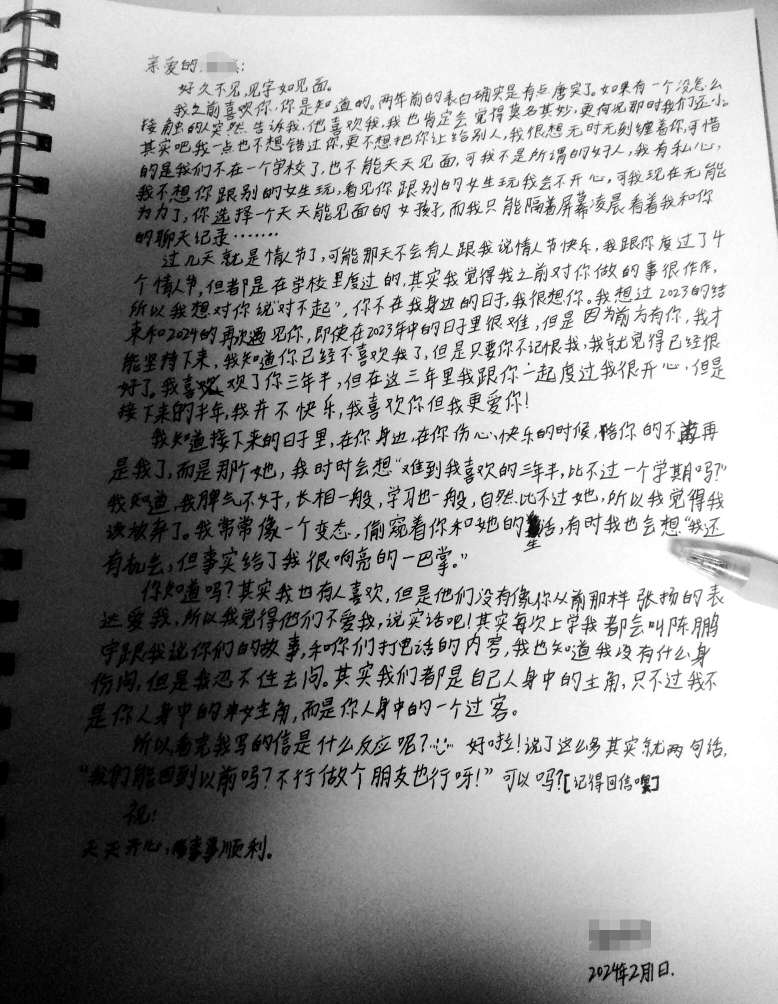 亲爱的
好久不见,见字如见面。
我之前喜欢你,你是知道的。两年前的表白确实是有点唐突了。如果有一个没怎么
接触的人突然告诉我,他喜欢我,我也肯定会觉得莫名其妙,更何况那时我们还小。
其实吧,我一点也不想错过你,更不想把你让给别人,我很想无时无刻缠着你,可惜
的是我们不在一个学校了,也不能天天见面,可我不是所谓的好人,我有私心,
我不想你跟别的女生玩,看见你跟别的女生玩我会不开心,可我现在无能
为力了,你选择一个天天能见面的女孩子,而我只能隔着屏幕凌晨看着我和你
的聊天记录·······
过几天就是情人节了,可能那天不会有人跟我说情人节快乐,我跟你度过了4
个情人节,但都是在学校里度过的,其实我觉得我之前对你做的事很作作,
所以我想对你说“对不起”,你不在我身边的日子,我很想你。我想过2023的结
束和2024的再次遇见你,即使在2023年中的日子里很难,但是因为前方有你,我才
能坚持下来,我知道你已经不喜欢我了,但是只要你不记恨我,我就觉得已经很
好了。我喜欢了你三年半,但在这三年里我跟你一起度过我很开心,但是
接下来的半年,我并不快乐,我喜欢你但我更爱你!
我知道接下来的日子里,在你身边,在你伤心、快乐的时候,陪你的不再
是我了,而是那个她,我时时会想“难到我喜欢的三年半,比不过一个学期吗?”
我知道,我脾气不好,长相一般,学习也一般,自然比不过她,所以我觉得我
该放弃了。我常常像一个变态,偷窥着你和她的生活,有时我也会想“我还
有机会,但事实给了我很响亮的一巴掌。”
你知道吗?其实我也有人喜欢,但是他们没有像你从前那样张扬的表
达爱我,所以我觉得他们不爱我,说实话吧!其实每次上学我都会叫陈鹏
宇跟我说你们的故事,和你们打电话的内容,我也知道我没有什么身
份问,但是我忍不住去问。其实我们都是自己人身中的主角,只不过我不
是你人身中的女主角,而是你人身中的一个过客。
所以看完我写的信是什么反应呢?好啦!说了这么多其实就两句话,
“我们能回到以前吗?不行做个朋友也行呀!”可以吗?[记得回信嘿]
祝:
天天开心,事事顺利。
2024年2月1日.